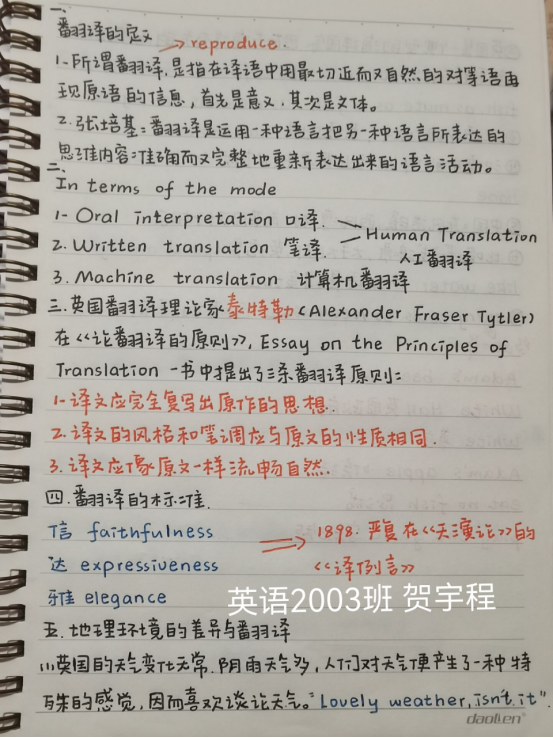 一、
翻译的定义 → reproduce.
1-所谓翻译,是指在译语中用最切近而又自然的对等语再
现原语的信息,首先是意义,其次是文体。
2.张培基:翻译是运用一种语言把另一种语言所表达的
思维内容准确而又完整地重新表达出来的语言活动。
二、
In terms of the mode
1- Oral interpretation 口译.
2. Written translation 笔译.
Human Translation
人工翻译
3. Machine translation 计算机翻译
三.英国翻译理论家泰特勒(Alexander Fraser Tytler)
在《论翻译的原则》, Essay on the Principles of
Translation 一书中提出了三条翻译原则:
1-译文应完全复写出原作的思想.
2.译文的风格和笔调应与原文的性质相同.
3.译文应像原文一样流畅自然.
四.翻译的标准.
信 faithfulness
达 expressiveness
雅 elegance
1898. 严复在《天演论》的
《译例言》
英语2003班 贺宇程
五.地理环境的差异与翻译
(1)英国的天气变化无常.阴雨天气多,人们对天气便产生了一种特
殊的感觉,因而喜欢谈论天气。"Lovely weather, isn't it".
daolien®